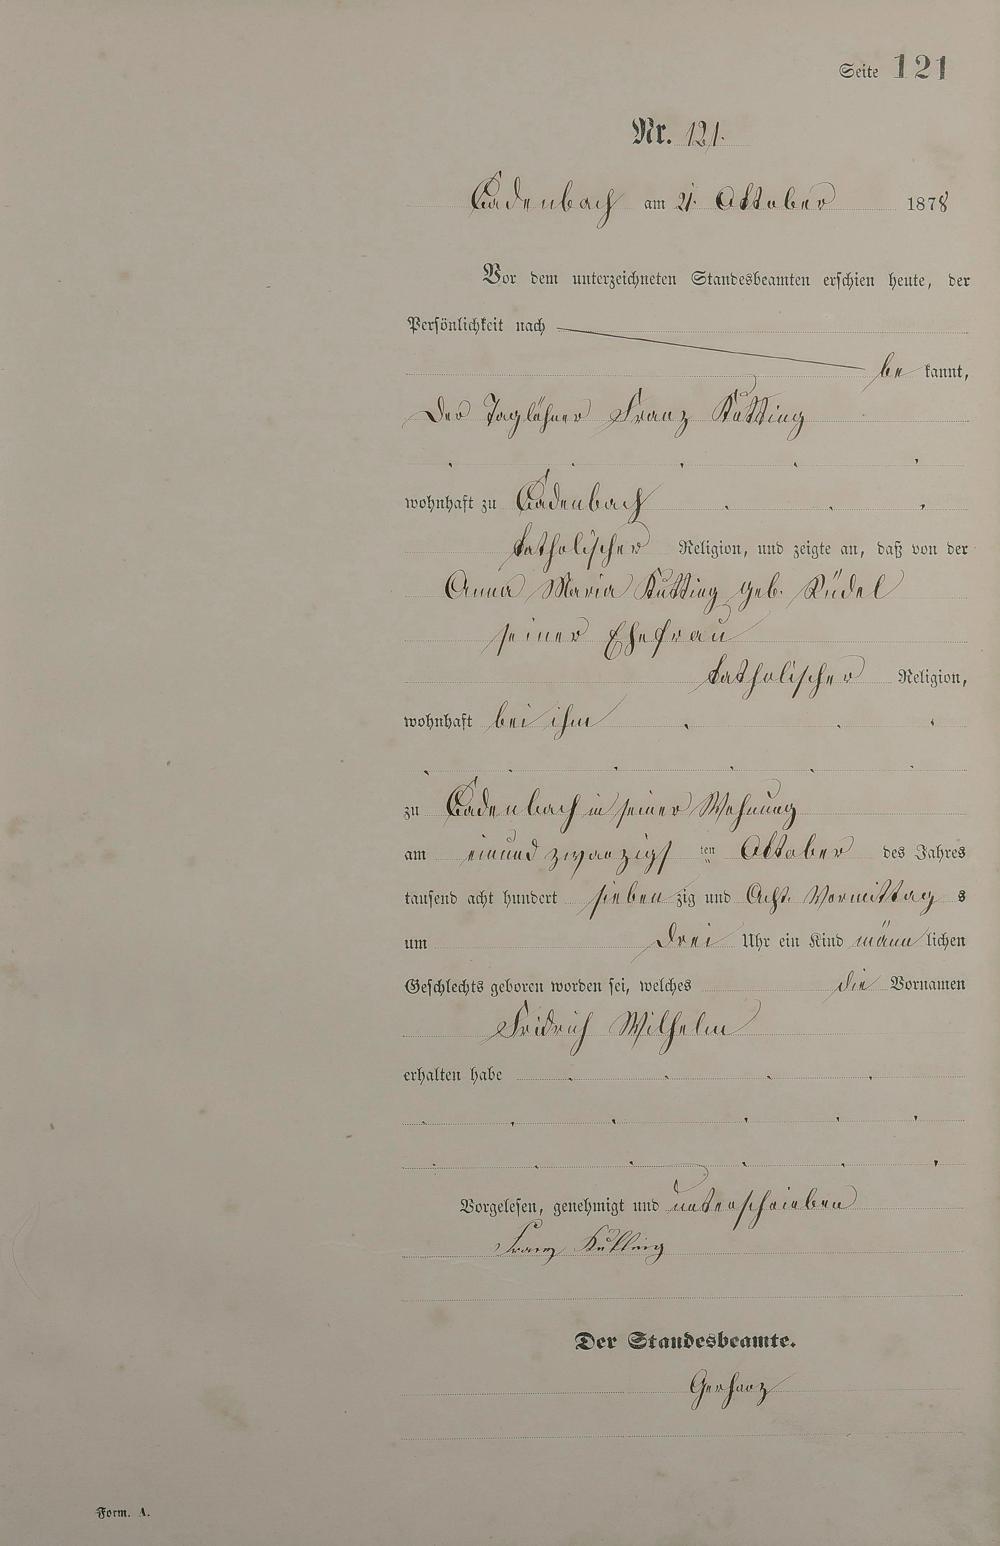 Seite 121
Nr. 121.
Cadenbach am 21. Oktober 1878
Vor dem unterzeichneten Standesbeamten erschien heute, der
Persönlichkeit nach
be kannt,
Der Taglöhner Franz Kutting
wohnhaft zu Cadenbach
katholischer Religion, und zeigte an, daß von der
Anna Maria Kutting geb. Rüdel
seiner Ehefrau
katholischer Religion,
wohnhaft bei ihm
zu Cadenbach in seiner Wohnung
am einund zwanzigs ten Oktober des Jahres
tausend acht hundert sieben zig und Acht. Vormittag s
um Drei Uhr ein Kind männ lichen
Geschlechts geboren worden sei, welches die Vornamen
Fridrich Wilhelm
erhalten habe
Vorgelesen, genehmigt und unterschrieben
Franz Kutting
Der Standesbeamte.
Gerharz
Form. A.